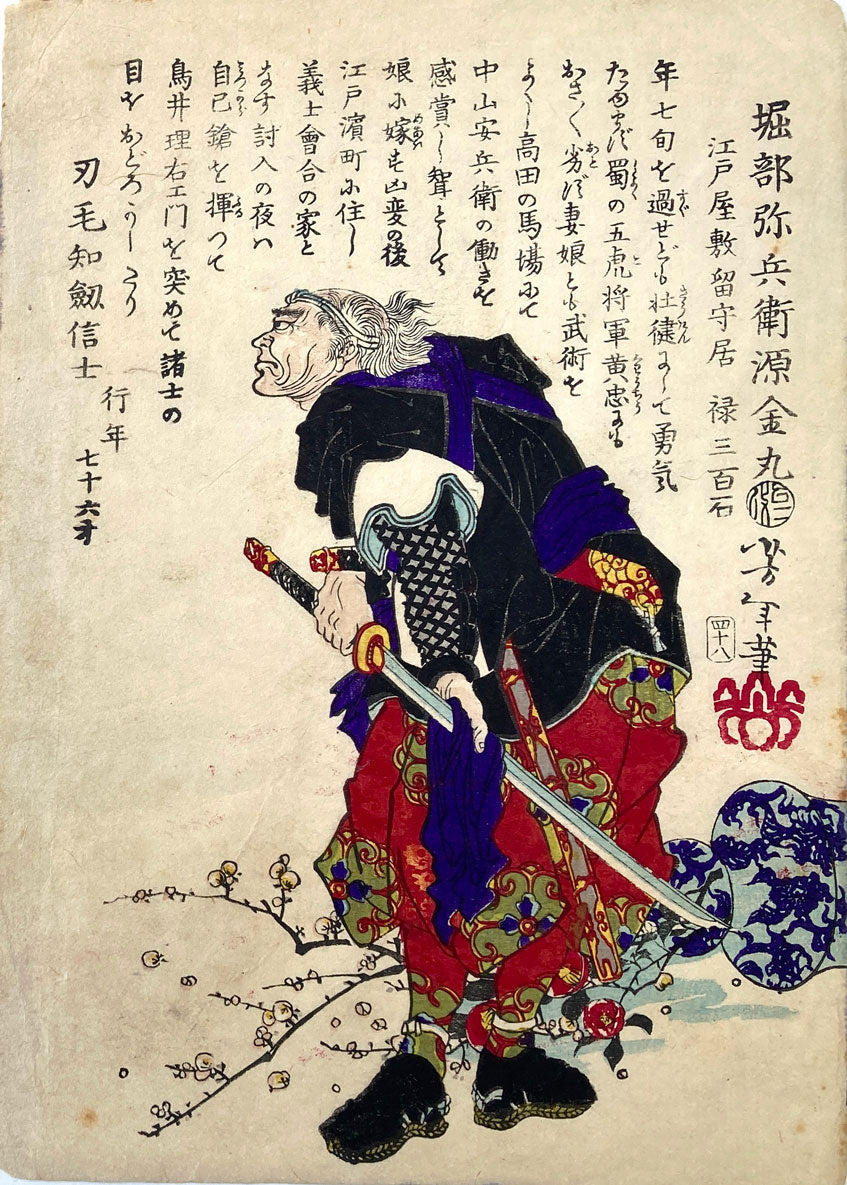 堀部弥兵衛源金丸
江戸屋敷留守居 禄三百石
年七旬を過せども壮健にして勇気
たゆまず蜀の五虎将軍黄忠にも
おさ〱劣ず妻娘とも武術を
よくし高田の馬場にて
中山安兵衛の働きを
感賞し聟として
娘に嫁す凶変の後
江戸濱町に住し
義士會合の家と
なす討入の夜は
自己鎗を揮つて
鳥井理右エ門を突めて諸士の
目をおどろかしたり
刃毛知劔信士
行年
七十六才
芳年筆
四十八